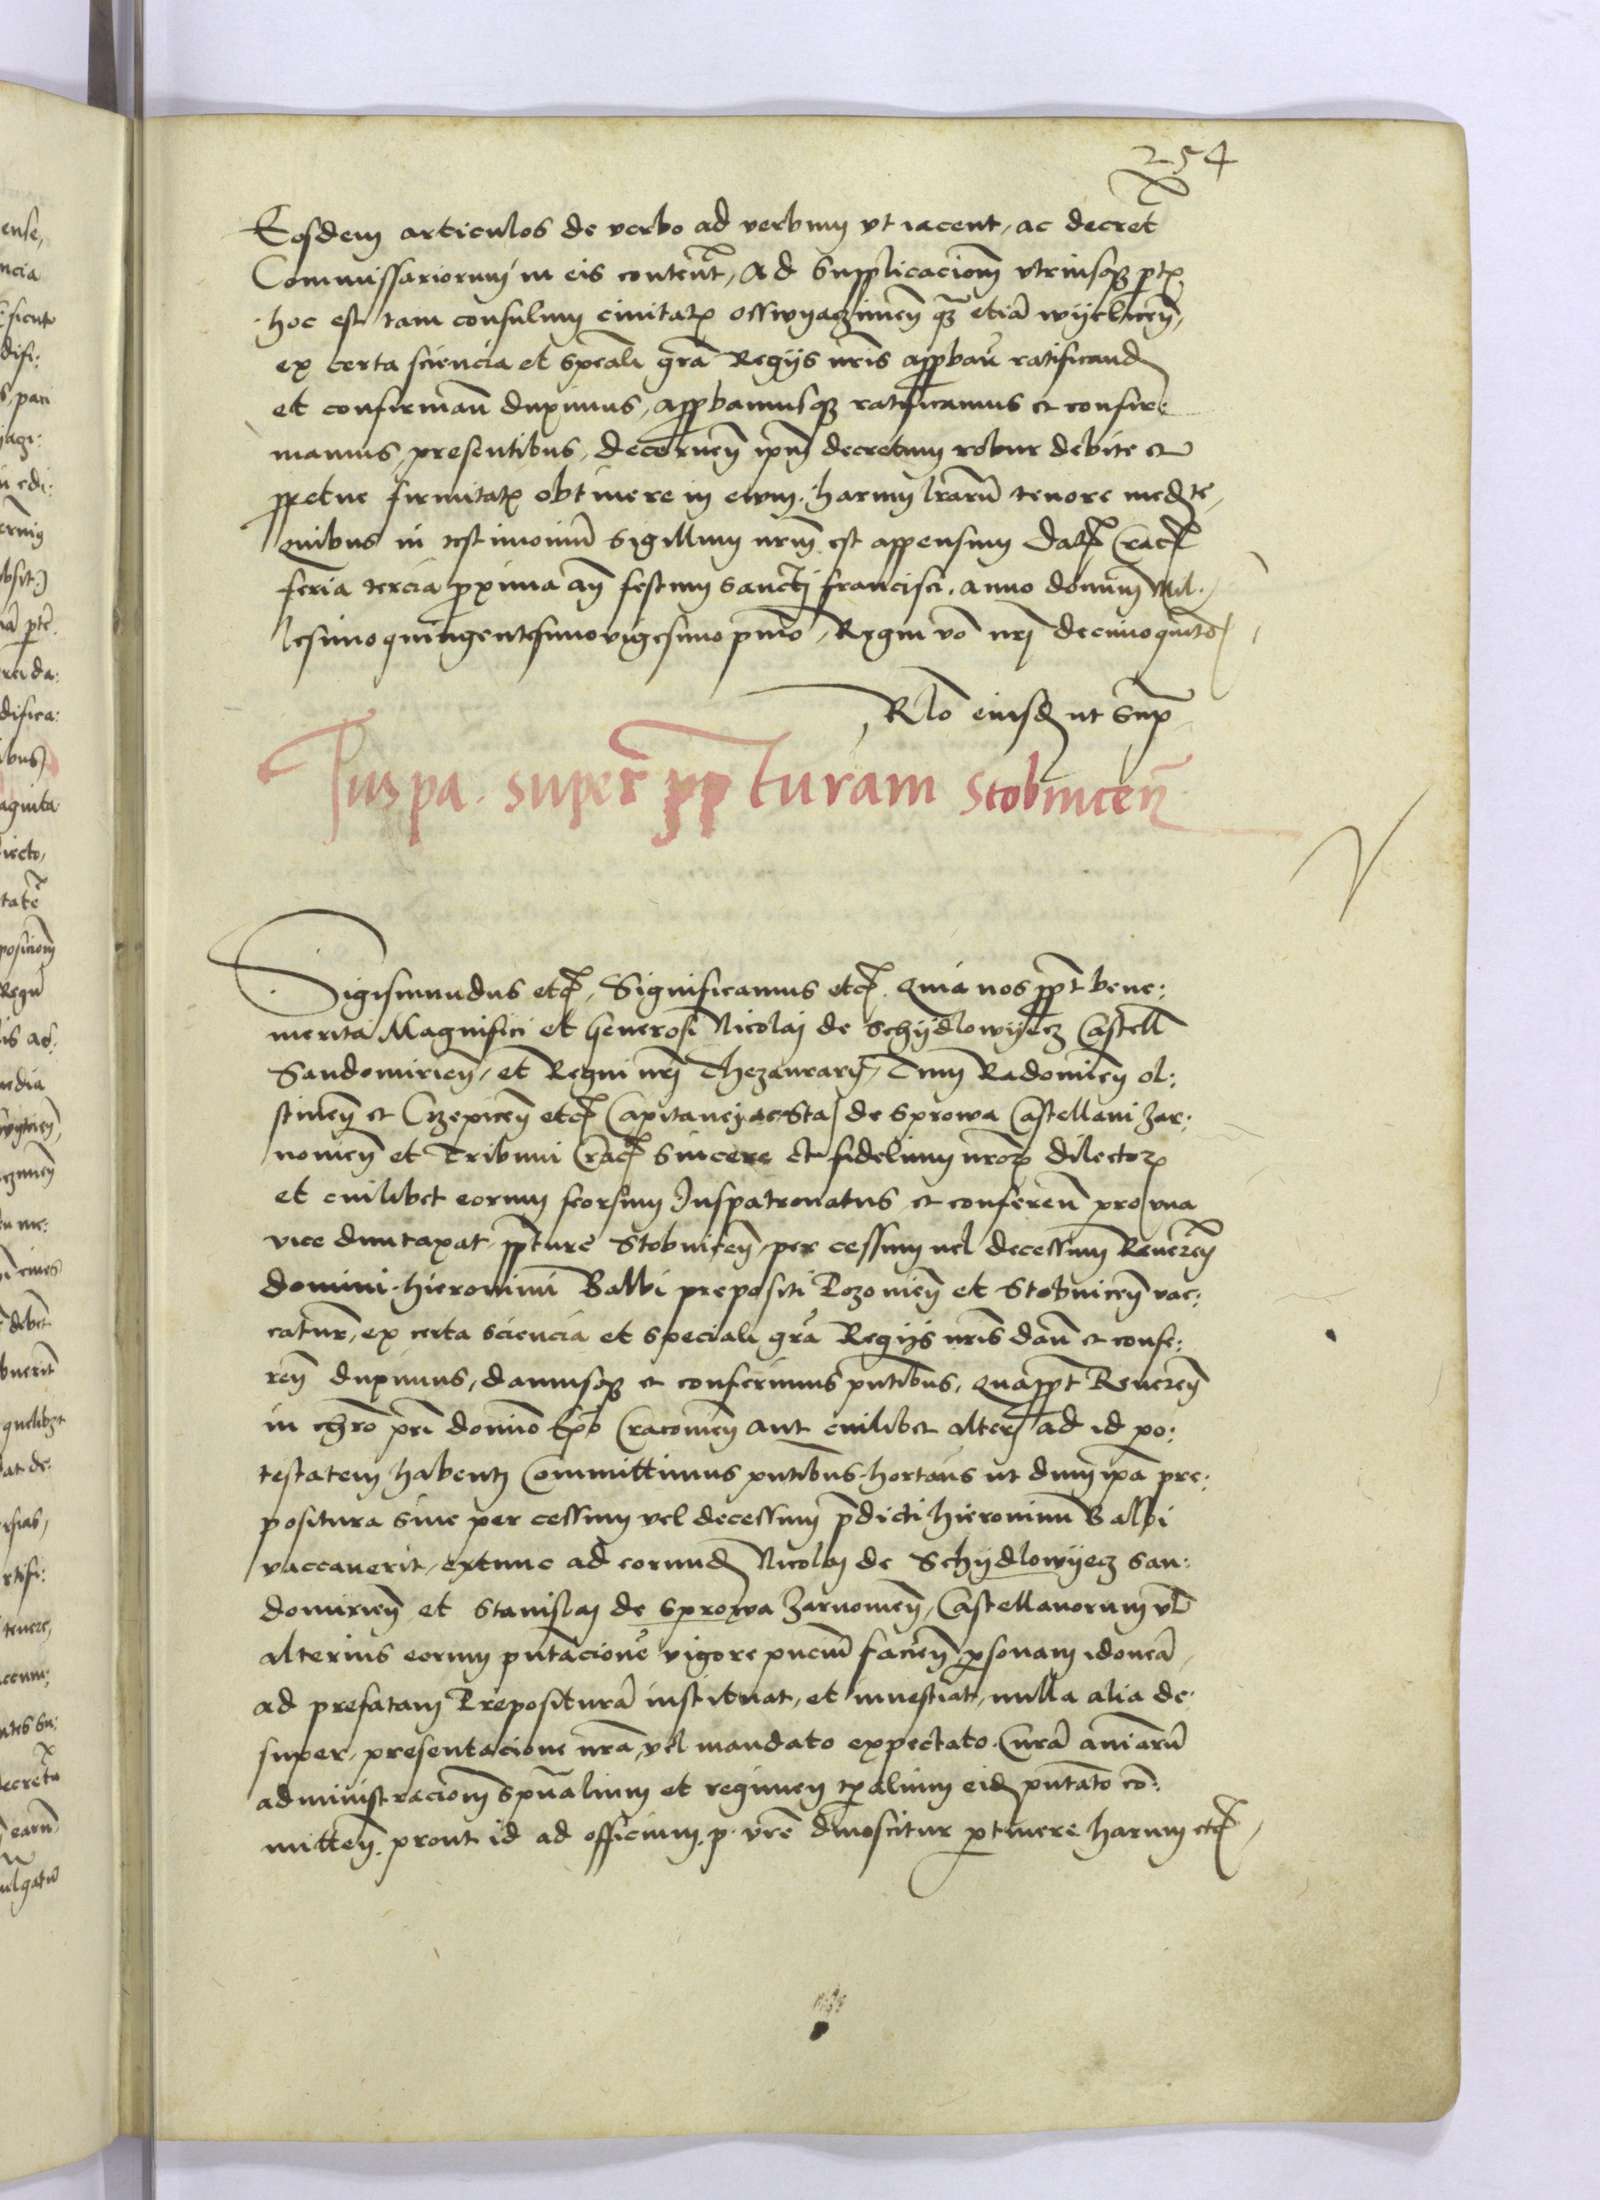 254
Eosdem articulos de verbo ad verbum vt iacent, ac decret
Commissariorum in eis content, Ad Supplicacionem vtriusq ptis
hoc est tam consulum civitatis osswyaczimen qz etia wyelicen,
ex certa sciencia et speciali gra Regijs nris appbau ratificand
et confirmau duximus, appbamusq ratificamus et confir-
mamus, presentibus, decernen ipm decretum robur debite et
ppetue firmitatis obtinere in evum. harum lrarum tenore mediante,
quibus in testimonium Sigillum nrum est appensum Dat Crac
feria tercia proxima an festum sancti francisci. Anno domini Mil-
lesimoquingentesimovigesimo pmo, Regni vo nri decimoquinto
Rlo eiusd ut Sup
Juspa. super ppturam Stobnicen
Sigismundus etc, Significamus etc. Quia nos ppt bene:
merita Magnifici et Generosi Nicolai de Schydlowyecz Castell
Sandomirien, et Regni nri Thezaurarij, Tum Radomien ol:
stinen et Czepicen etc Capitanei ac Sta de Sprowa Castellani Zar:
nomen et Tribuni Crac Sincere et fidelium nror dilector
et cuilibet eorum seorsum Juspatronatus et conferen pro vna
vice duntaxat ppture Stobnicen, per cessum uel decessum Reueren
domini hieronimi Balbi prepositi Pozonien et Stobnicen vac:
catur, ex certa sciencia et speciali gra Regijs nris dan et confe:
ren duximus, damusq et conferimus pntibus, Quappt Reueren
in chro pri domino Epo Cracouien aut cuilibet alteri ad id po:
testatem habenti Committimus pntibus hortan ut dum ipa pre:
positura siue per cessum vel decessum pdicti hieronimi Balbi
vaccauerit, extunc ad eorund Nicolai de Schydlowyecz San:
domirien et Stanislai de Sprowa Zarnomen, Castellanorum vl
alterius eorum pntacione vigore pncium facien psonam idonea,
ad prefatam Prepositura instituat, et inuestiat, nulla alia de
super, presentacione nra, vel mandato expectato. Cura aniaru
administracionem spualium et regimen tpalium eid pntato co:
mitten. prout id ad officium. p. vre dinoscitur ptinere harum etc,